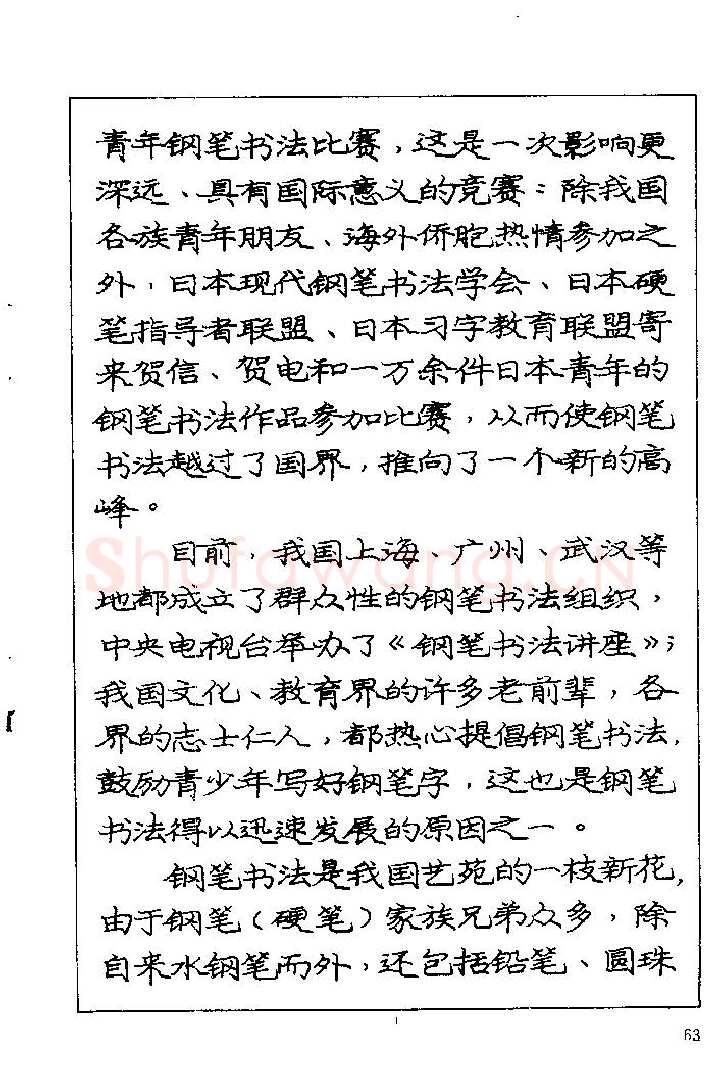 青年钢笔书法比赛，这是一次影响更
深远、具有国际意义的竞赛：除我国
各族青年朋友、海外侨胞热情参加之
外，日本现代钢笔书法学会、日本硬
笔指导者联盟、日本习字教育联盟寄
来贺信、贺电和一万余件日本青年的
钢笔书法作品参加比赛，从而使钢笔
书法越过了国界，推向了一个新的高
峰。
目前，我国上海、广州、武汉等
地都成立了群众性的钢笔书法组织，
中央电视台举办了《钢笔书法讲座》；
我国文化、教育界的许多老前辈，各
界的志士仁人，都热心提倡钢笔书法，
鼓励青少年写好钢笔字，这也是钢笔
书法得以迅速发展的原因之一。
钢笔书法是我国艺苑的一枝新花，
由于钢笔（硬笔）家族兄弟众多，除
自来水钢笔而外，还包括铅笔、圆珠
63
Shufawang.CN